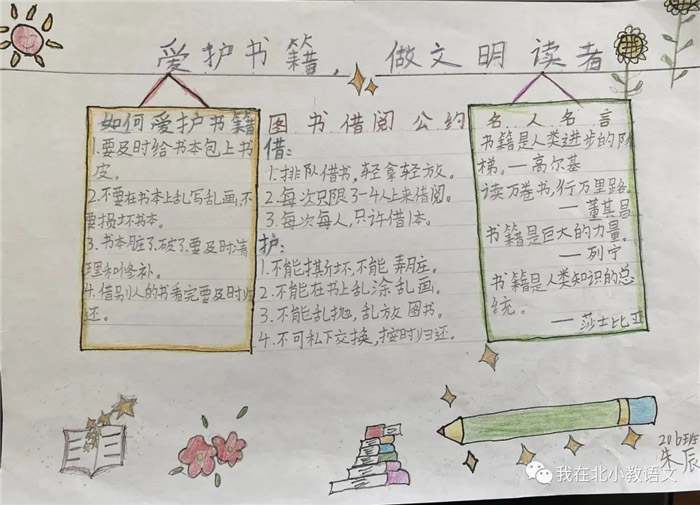 爱护书籍，做文明读者
如何爱护书籍
1.要及时给书本包上书
皮。
2.不要在书本上乱写乱画,不
要损坏书本。
3.书本脏了,破了,要及时清
理和修补。
4.借别人的书看完要及时归
还。
图书借阅公约
借:
1.排队借书,轻拿轻放。
2.每次只限3-4人上来借阅。
3.每次每人,只许借1本。
护:
1.不能撕坏,不能弄脏。
2.不能在书上乱涂乱画。
3.不能乱抛,乱放图书。
4.不可私下交换,按时归还。
名人名言
书籍是人类进步的阶
梯。—高尔基
读万卷书,行万里路。
—董其昌
书籍是巨大的力量。
—列宁
书籍是人类知识的总
统。
—莎士比亚
206班
朱辰
我在北小教语文